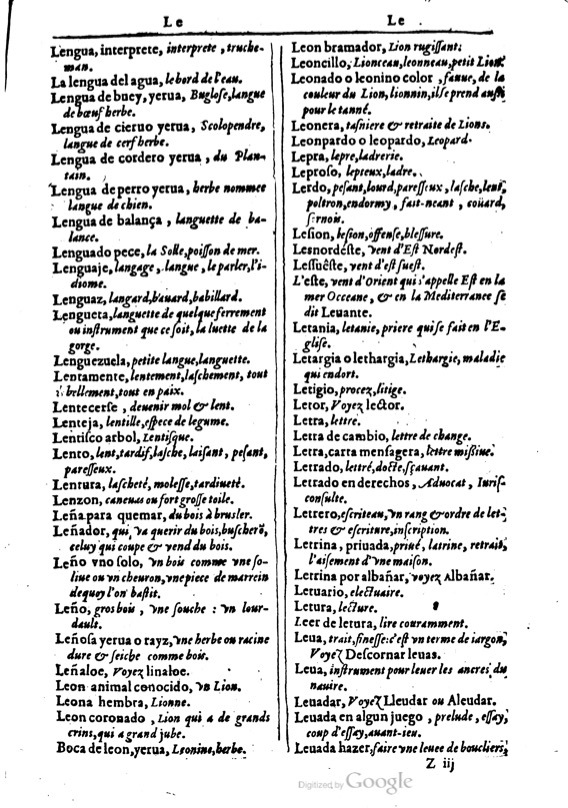 Le
Lengua, interprete, interprete, truche-
man.
La lengua del agua, le bord de l'eau.
Lengua de buey, yerua, Buglose, langue
de bœuf herbe.
Lengua de cieruo yerua, Scolopendre,
langue de cerf herbe.
Lengua de cordero yerua, du Plan-
tain.
Lengua de perro yerua, herbe nommee
langue de chien.
Lengua de balança, languette de ba-
lance.
Lenguado pece, la Solle, poisson de mer.
Lenguaje, langage, langue, le parler, l'i-
diome.
Lenguaz, langard, bauard, babillard.
Lengueta, languette de quelque ferrement
ou instrument que ce soit, la luette de la
gorge.
Lenguezuela, petite langue, languette.
Lentamente, lentement, laschement, tout
bellement, tout en paix.
Lentecerse, deuenir mol & lent.
Lenteja, lentille, espece de legume.
Lentisco arbol, Lentisque.
Lento, lent, tardif, lasche, laisant, pesant,
paresseux.
Lentura, lascheté, molesse, tardiueté.
Lenzon, caneuas ou fort grosse toile.
Leña para quemar, du bois à brusler.
Leñador, qui va querir du bois, buscherõ,
celuy qui coupe & vend du bois.
Leño vno solo, vn bois comme vne so-
liue ou vn cheuron, vne piece de marrein
dequoy l'on bastit.
Leño, gros bois, vne souche : vn lour-
dault.
Leñosa yerua o rayz, vne herbe ou racine
dure & seiche comme bois.
Leñaloe, Voyez linaloe.
Leon animal conocido, vn Lion.
Leona hembra, Lionne.
Leon coronado, Lion qui a de grands
crins, qui a grand jube.
Boca de leon, yerua, Leonine, herbe.
Le
Leon bramador, Lion rugissant.
Leoncillo, Lionceau, leonneau, petit Lion.
Leonado o leonino color, fauue, de la
couleur du Lion, lionnin, il se prend aussi
pour le tanné.
Leonera, tasniere & retraite de Lions.
Leonpardo o leopardo, Leopard.
Lepra, lepre, ladrerie.
Leproso, lepreux, ladre.
Lerdo, pesant, lourd, paresseux, lasche, lent,
poltron, endormy, fait-neant, coüard,
sornois.
Lesion, lesion, offense, blessure.
Lesnordéste, vent d'Est Nordest.
Lessuéste, vent d'est suest.
L'este, vent d'Orient qui s'appelle Est en la
mer Occeane, & en la Mediterranee se
dit Leuante.
Letania, letanie, priere qui se fait en l'E-
glise.
Letargia o lethargia, Lethargie, maladie
qui endort.
Letigio, procez, litige.
Letor, Voyez lector.
Letra, lettre.
Letra de cambio, lettre de change.
Letra, carta mensagera, lettre missiue.
Letrado, lettré, docte, sçauant.
Letrado en derechos, Aduocat, Iuris-
consulte.
Letrero, escriteau, vn rang & ordre de let-
tres & escriture, inscription.
Letrina, priuada, priué, latrine, retrait,
l'aisement d'vne maison.
Letrina por albañar, voyez Albañar.
Letuario, electuaire.
Letura, lecture.
Leer de letura, lire couramment.
Leua, trait, finesse: c'est vn terme de iargon,
Voyez Descornar leuas.
Leua, instrument pour leuer les ancres du
nauire.
Leuadar, Voyez Lleudar ou Aleudar.
Leuada en algun juego, prelude, essay,
coup d'essay, auant-ieu.
Leuada hazer, faire vne leuee de boucliers,
Z iij
Digitized by Google